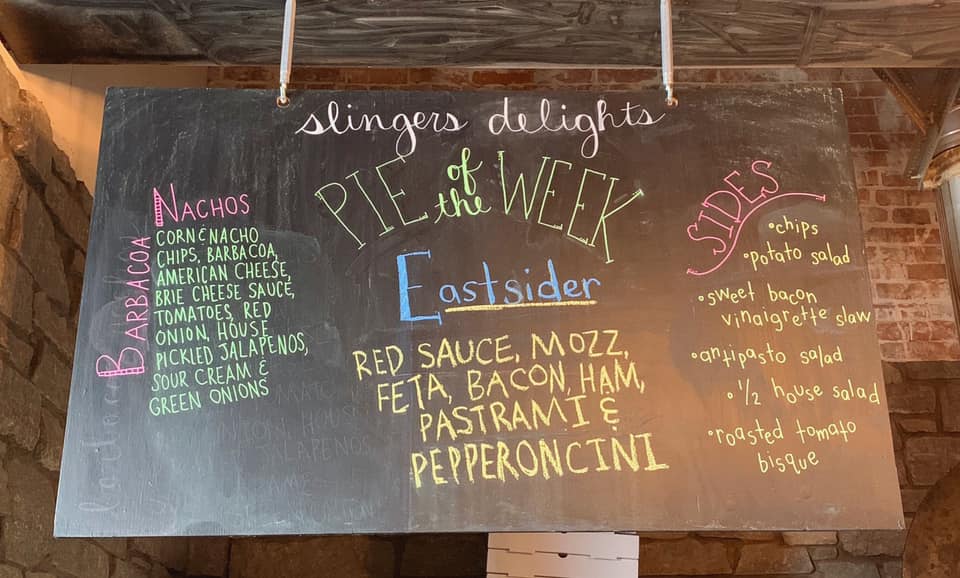 slingers delights
BARBACOA
NACHOS
CORN & NACHO
CHIPS, BARBACOA,
AMERICAN CHEESE,
BRIE CHEESE SAUCE,
TOMATOES, RED
ONION, HOUSE
PICKLED JALAPENOS,
SOUR CREAM &
GREEN ONIONS
PIE of the WEEK
Eastsider
RED SAUCE, MOZZ,
FETA, BACON, HAM,
PASTRAMI &
PEPPERONCINI
SIDES
•chips
•potato salad
•sweet bacon
vinaigrette slaw
•antipasto salad
•1/2 house salad
•roasted tomato
bisque